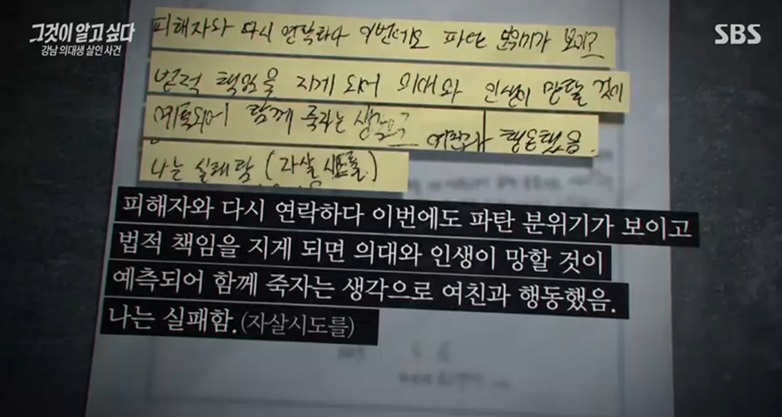 그것이 알고 싶다
강남 의대생 살인 사건
SBS
피해자와 다시 연락하다 이번에도 파탄 분위기가 보이고
법적 책임을 지게 되어 의대와 인생이 망할 것이
예측되어 함께 죽자는 생각으로 여친과 행동했음.
나는 실패함 (자살시도를.)
피해자와 다시 연락하다 이번에도 파탄 분위기가 보이고
법적 책임을 지게 되면 의대와 인생이 망할 것이
예측되어 함께 죽자는 생각으로 여친과 행동했음.
나는 실패함.(자살시도를)